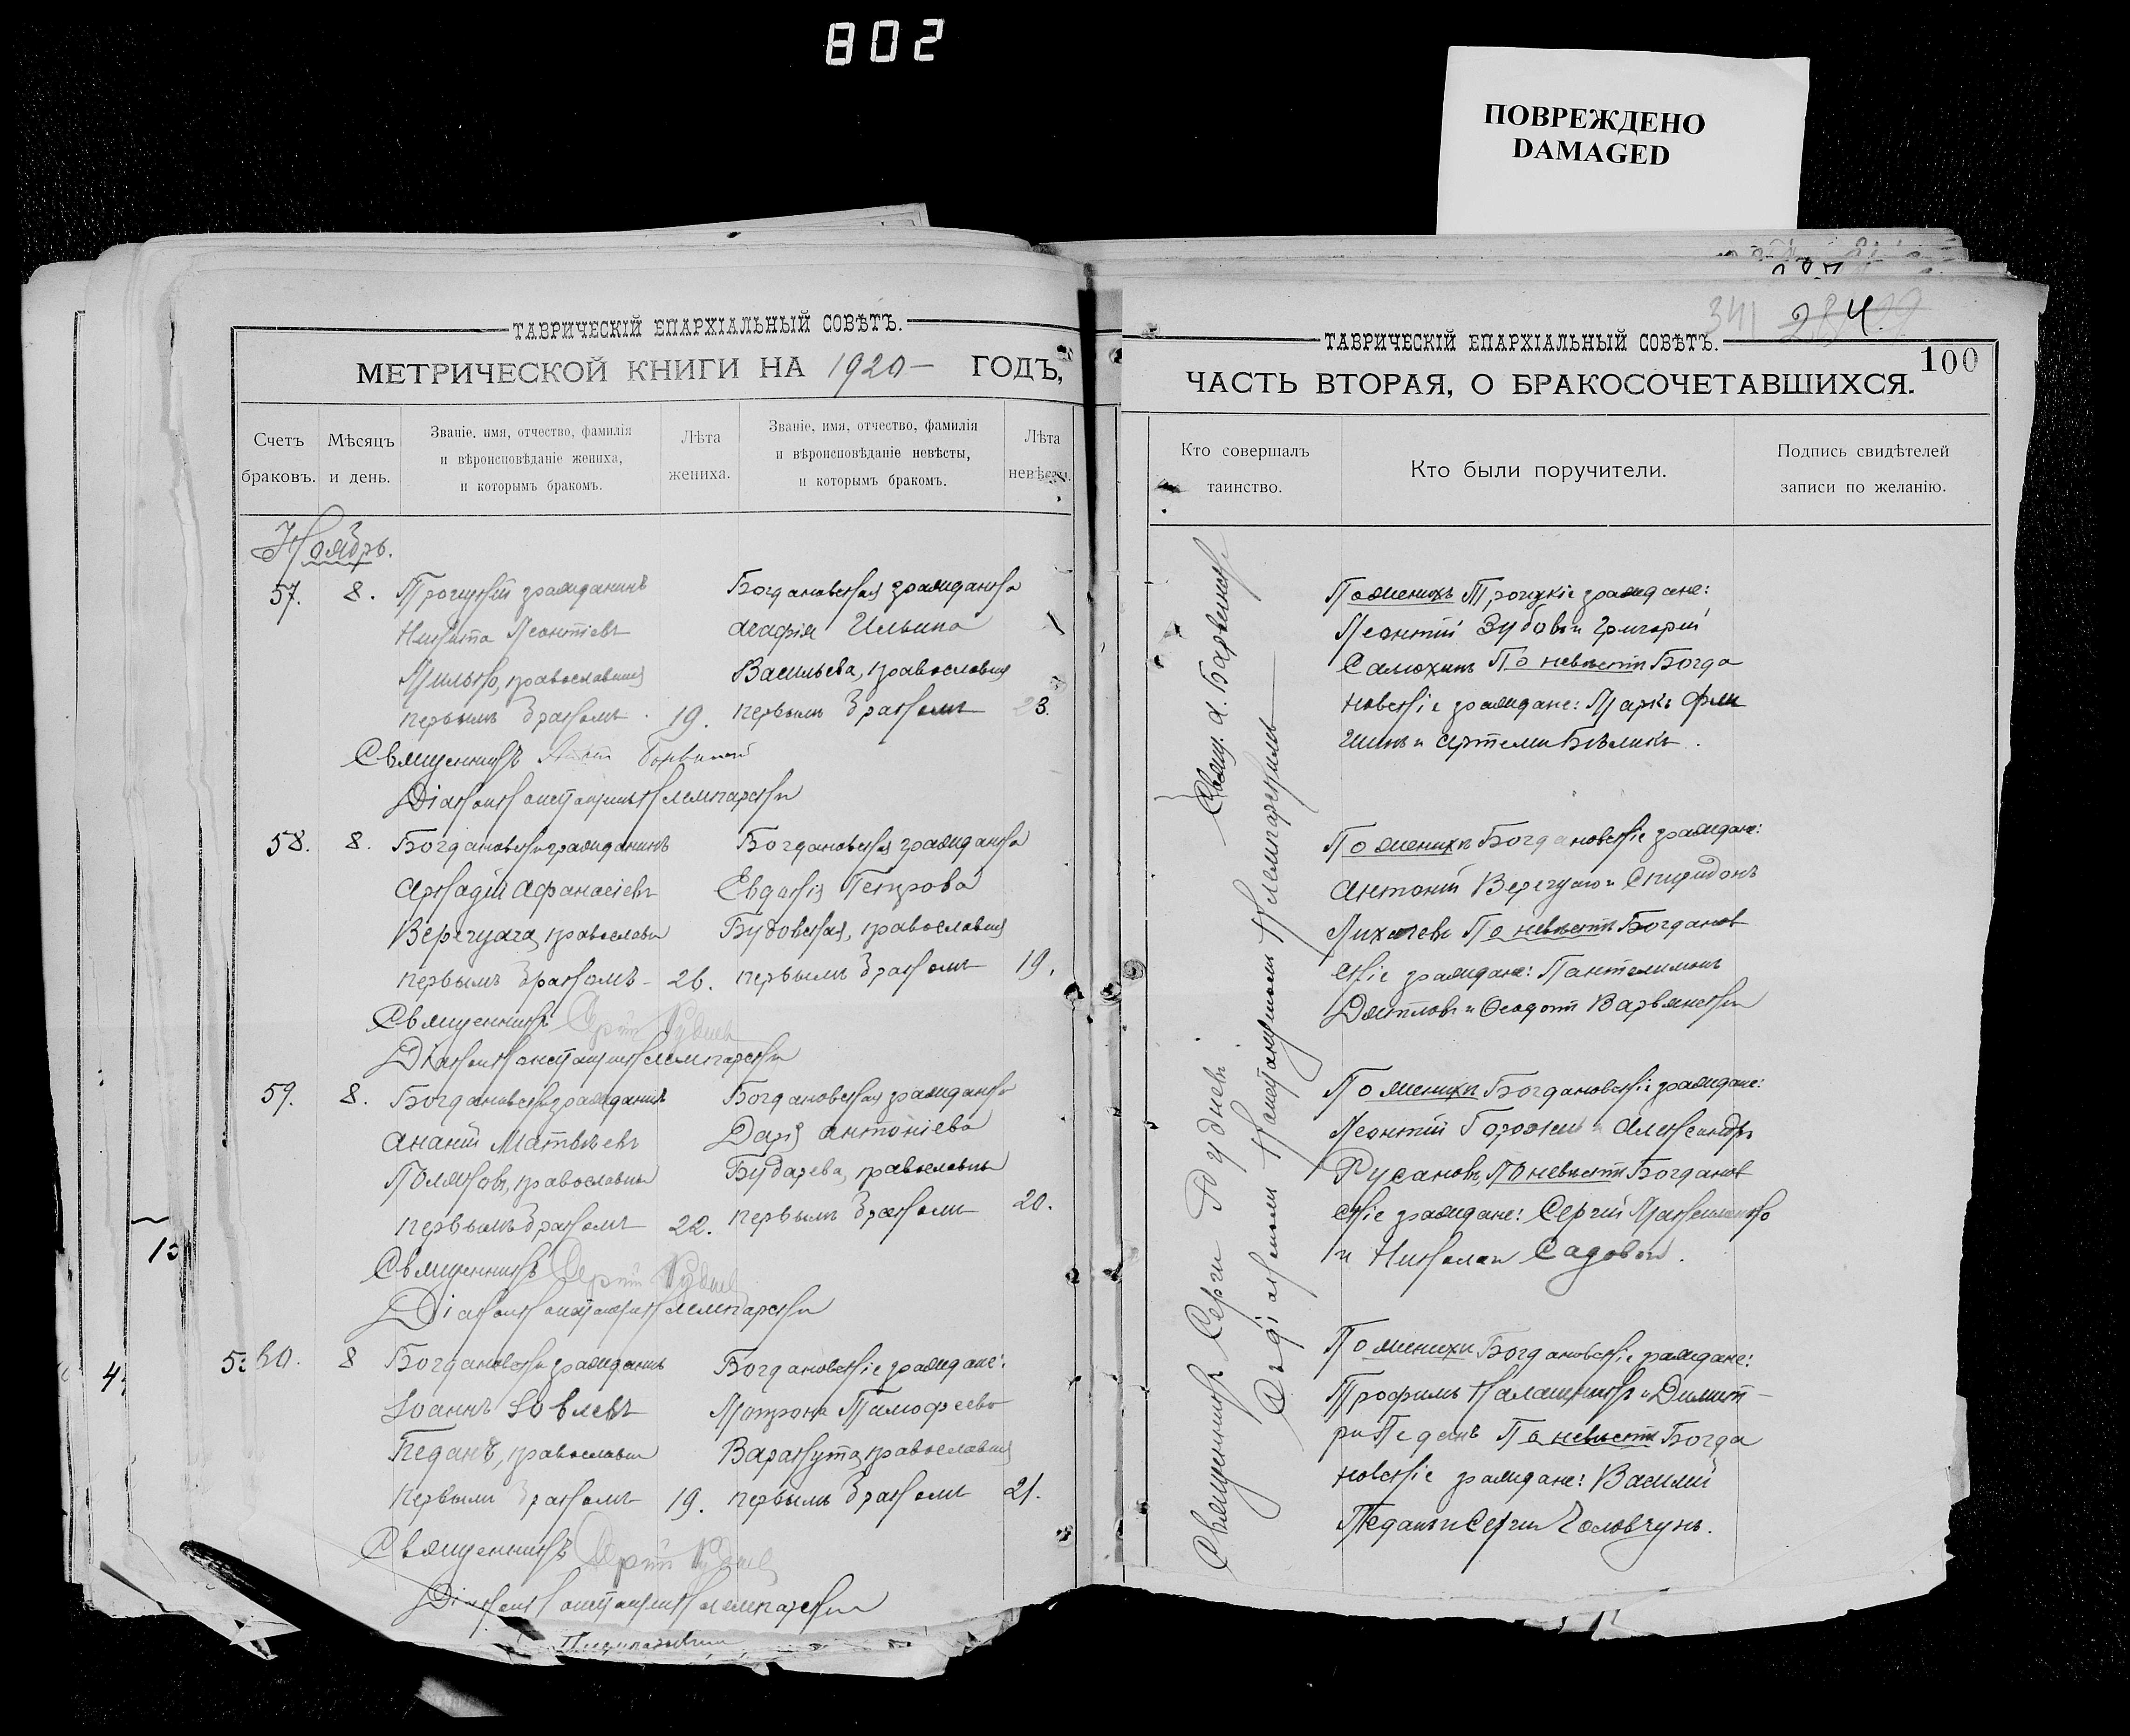 802
ПОВРЕЖДЕНО
DAMAGED
341 284
ТАВРИЧЕСКІЙ ЕПАРХІАЛЬНЫЙ СОВѢТЪ.
МЕТРИЧЕСКОЙ КНИГИ НА 1920 - ГОДЪ,
Счетъ браковъ.
Мѣсяцъ и день.
Званіе, имя, отчество, фамилія
и вѣроисповѣданіе жениха,
и которымъ бракомъ.
Лѣта жениха.
Званіе, имя, отчество, фамилія
и вѣроисповѣданіе невѣсты,
и которымъ бракомъ.
Лѣта невѣсты.
Ноябрь.
57. 8. Троицкій гражданинъ Богдановская гражданка
Никита Леонтіевъ Агафія Ильина
православный Васильева, православная
первымъ бракомъ 19. первымъ бракомъ 23.
Священникъ
Діаконъ Константинъ Клемпарскій
58. 8. Богдановскій гражданинъ Богдановская гражданка
Аркадій Афанасіевъ Евдокія Петрова
православный Будовская, православная
первымъ бракомъ - 26. первымъ бракомъ 19.
Священникъ Сергій Руднев
Діаконъ Константинъ Клемпарскій
59. 8. Богдановскій гражданинъ Богдановская гражданка
Ананій Матвѣевъ Дарія Антоніева
Поляковъ, православный Бударева, православная
первымъ бракомъ 22. первымъ бракомъ 20.
Священникъ Сергій Руднев
Діаконъ Константинъ Клемпарскій
60. 8 Богдановскій гражданинъ Богдановскіе граждане:
Іоаннъ Іовлевъ Матрона Тимофеева
Педанъ, православный Варакута, православная
первымъ бракомъ 19. первымъ бракомъ 21.
Священникъ Сергій Руднев
Діаконъ Константинъ Клемпарскій
ТАВРИЧЕСКІЙ ЕПАРХІАЛЬНЫЙ СОВѢТЪ.
100
ЧАСТЬ ВТОРАЯ, О БРАКОСОЧЕТАВШИХСЯ.
Кто совершалъ таинство.
Кто были поручители.
Подпись свидѣтелей записи по желанію.
Священникъ Сергій Рудневъ Свящ. А.
Съ діакономъ Константиномъ Клемпарскимъ
По женихѣ Троицкіе граждане:
Леонтій Зубовъ и Григорій
Самохинъ По невѣстѣ Богда
новскіе граждане: Маркъ
и Артемій Бѣликъ.
По женихѣ Богдановскіе граждане:
Антоній и Спиридонъ
Лихачевъ По невѣстѣ Богданов
скіе граждане: Пантелимонъ
Дятловъ и Ѳеодотъ Варвянскій
По женихѣ Богдановскіе граждане:
Леонтій и Александръ
Русановъ, По невѣстѣ Богданов
скіе граждане: Сергій
и Николай Садовой.
По женихѣ Богдановскіе граждане:
Трофимъ Калашникъ и Димит-
рій Педанъ По невѣстѣ Богда
новскіе граждане: Василій
Педанъ и Сергій Головчунъ.